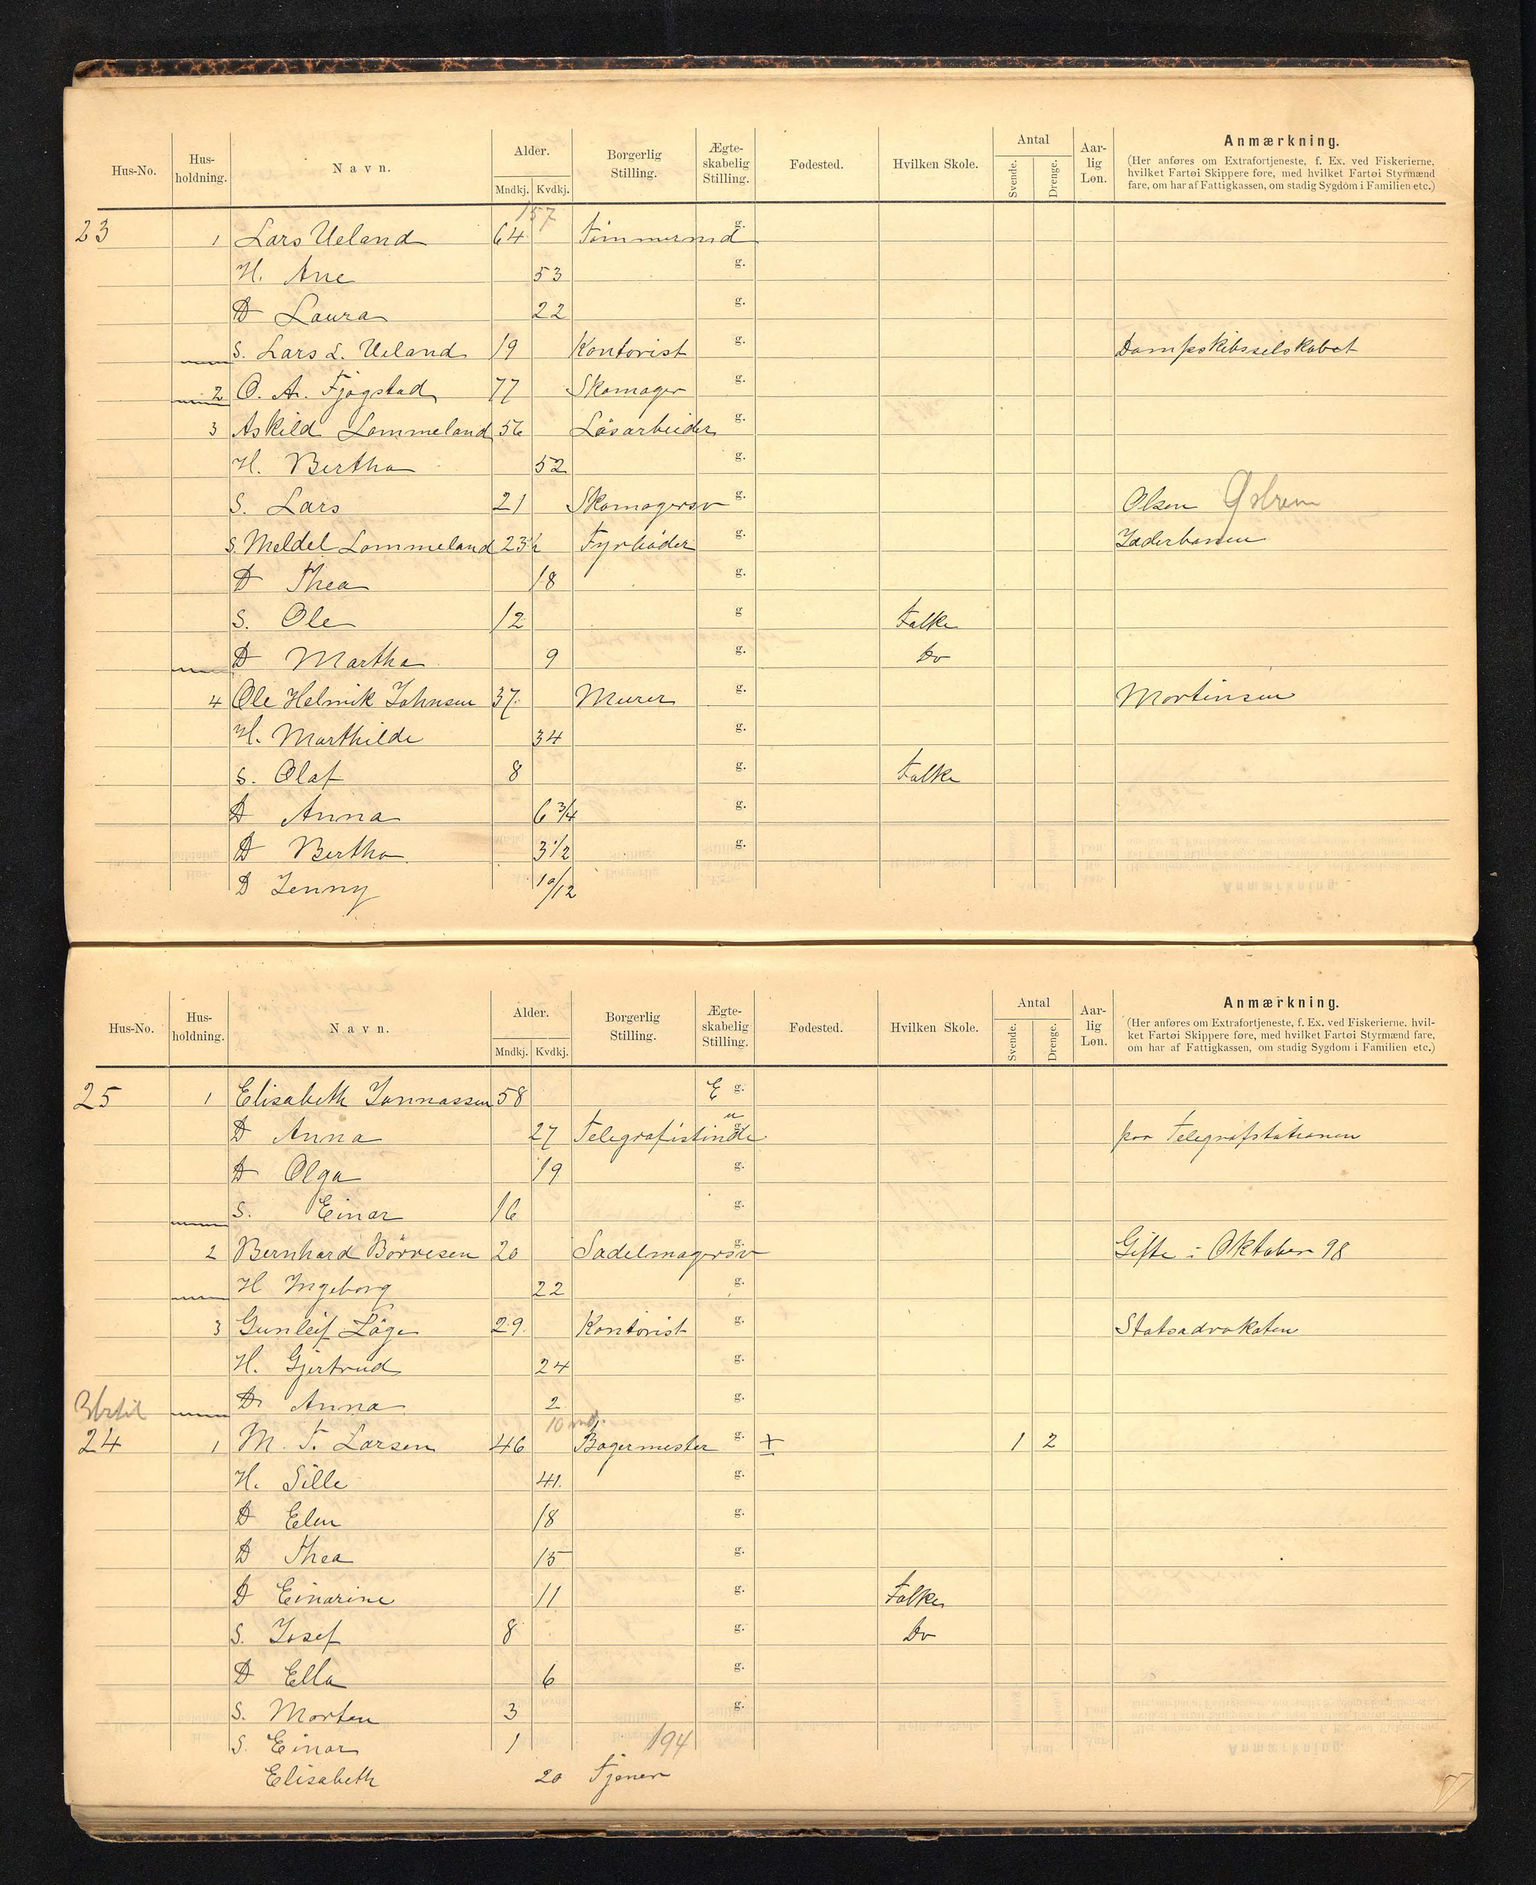 Hus-No. Hus-holdning. Navn. Alder. Mndkj. Kvdkj. Borgerlig Stilling. Ægte-skabelig Stilling. Fødested. Hvilken Skole. Antal Svende. Drenge. Aar-lig Løn. Anmærkning.
(Her anføres om Extrafortjeneste, f. Ex. ved Fiskerierne,
hvilket Fartøi Skippere føre, med hvilket Fartøi Styrmænd
fare, om har af Fattigkassen, om stadig Sygdom i Familien etc.)
157
23 1 Lars Ueland 64 Tømmermd g.
H. Ane 53 g.
D Laura 22 g.
S. Lars L. Ueland 19 Kontorist g. Dampskibsselskabet
2 O. A. Fjogstad 77 Skomager g.
3 Askild Lommeland 56 Løsarbeider g.
H. Bertha 52 g.
S. Lars 21 Skomagersv g. Olsen
S. Meldel Lommeland 23½ Fyrbøder g. Jæderbanen
D Thea 18 g.
S. Ole 12 g Folke
D Martha 9 g. Do
4 Ole Helmik Johnsen 37. Murer g. Mortinsen
H. Marthilde 34 g.
S. Olaf 8 g. Folke
D Anna 6 3/4 g.
D Bertha 3 1/2 g.
D Jenny 10/12
Hus-No. Hus-holdning. Navn. Alder. Mndkj. Kvdkj. Borgerlig Stilling. Ægte-skabelig Stilling. Fødested. Hvilken Skole. Antal Svende. Drenge. Aar-lig Løn. Anmærkning.
(Her anføres om Extrafortjeneste, f. Ex. ved Fiskerierne, hvil-
ket Fartøi Skippere føre, med hvilket Fartøi Styrmænd fare,
om har af Fattigkassen, om stadig Sygdom i Familien etc.)
25 1 Elisabeth Jonnassen 58 E g.
D Anna 27 Telegrafistinde u g. paa Telegrafstationen
D Olga 19 g.
S. Einar 16 g.
2 Bernhard Börresen 20 Sadelmagersv g. Gifte i Oktober 98
H Ingeborg 22 g.
3 Gunleif Löge 29. Kontorist g. Statsadvokaten
H. Gjertrud 24 g.
D. Anna 2 g.
10 md.
24 1 M. T. Larsen 46 Bagermester g. + 1 2
H. Sille 41. g.
D Elen 18 g.
D Thea 15 g.
D Einarine 11 g. Folke
S. Josef 8 g. Do
D Ella 6 g.
S. Morten 3 g.
S. Einar 1 194
Elisabeth 20 Tjener